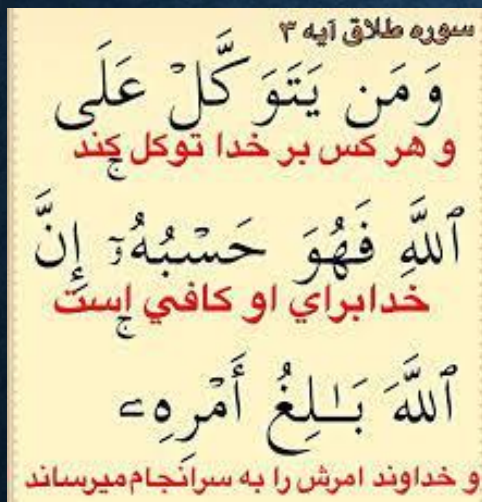 سوره طلاق آیه ۳
وَمَن يَتَوَكَّلْ عَلَى
و هر کس بر خدا توکل کند
ٱللَّهِ فَهُوَ حَسْبُهُۥٓ إِنَّ
خدابراي او كافي است
ٱللَّهَ بَـٰلِغُ أَمْرِهِۦ
و خداوند امرش را به سرانجام میرساند